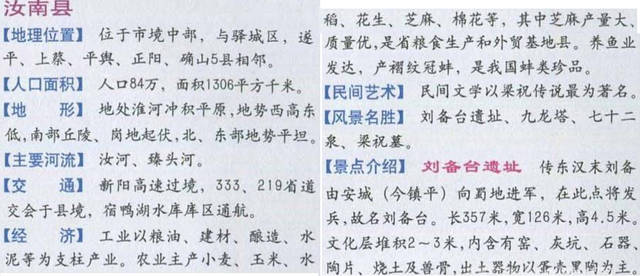 汝南县
【地理位置】 位于市境中部，与驿城区，遂
平、上蔡、平舆、正阳、确山5县相邻。
【人口面积】 人口84万，面积1306平方千米。
【地 形】 地处淮河冲积平原，地势西高东
低，南部丘陵、岗地起伏，北、东部地势平坦。
【主要河流】 汝河、臻头河。
【交 通】 新阳高速过境，333、219省道
交会于县境，宿鸭湖水库库区通航。
【经 济】 工业以粮油、建材、酿造、水
泥等为支柱产业。农业主产小麦、玉米、水
稻、花生、芝麻、棉花等，其中芝麻产量大、
质量优，是省粮食生产和外贸基地县。养鱼业
发达，产褶纹冠蚌，是我国蚌类珍品。
【民间艺术】 民间文学以梁祝传说最为著名。
【风景名胜】 刘备台遗址、九龙塔、七十二
泉、梁祝墓。
【景点介绍】 刘备台遗址 传东汉末刘备
由安城（今镇平）向蜀地进军，在此点将发
兵，故名刘备台。长357米，宽126米，高4.5米。
文化层堆积2～3米，内含有窑、灰坑、石器、
陶片、烧土及兽骨，出土器物以蛋壳黑陶为主。